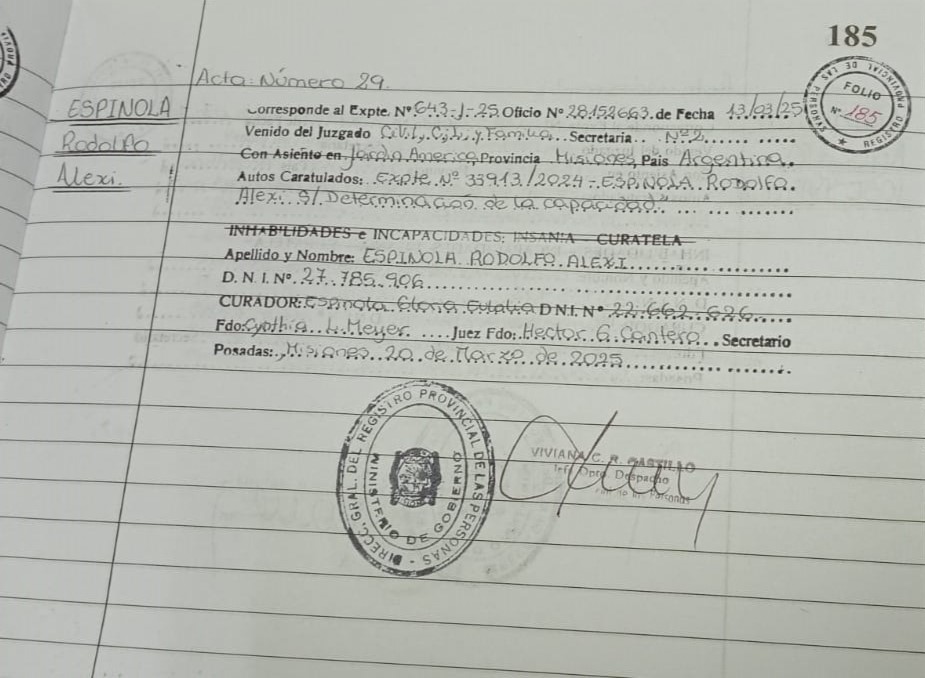 185
Acta Número 29.
ESPINOLA
Rodolfo
Alexi.
Corresponde al Expte. Nº 643-J-25 Oficio Nº 28152663. de Fecha 13/03/25
Venido del Juzgado Civil, Com., y Familia Secretaria Nº2
Con Asiento en Jardín America Provincia Misiones País Argentina.
Autos Caratulados: Expte Nº 33913/2024 - ESPINOLA RODOLFO.
Alexi S/ Determinación de la capacidad"
INHABILIDADES e INCAPACIDADES: INSANIA - CURATELA
Apellido y Nombre: ESPINOLA RODOLFO ALEXI
D. N. I. Nº 27.785.906
CURADOR: Espinola Gloria Eulalia D N.I. Nº 22.662.626
Fdo: Cynthia L. Meyer Juez Fdo: Hector G. Cantero Secretario
Posadas: Misiones 20 de Marzo de 2025
FOLIO
Nº 185
REGISTRO PROVINCIAL DE LAS PERSONAS
DIRECC. GRAL. DEL REGISTRO PROVINCIAL DE LAS PERSONAS
MINISTERIO DE GOBIERNO
VIVIANA C. R. CASTILLO
Dpto. Despacho
Personas